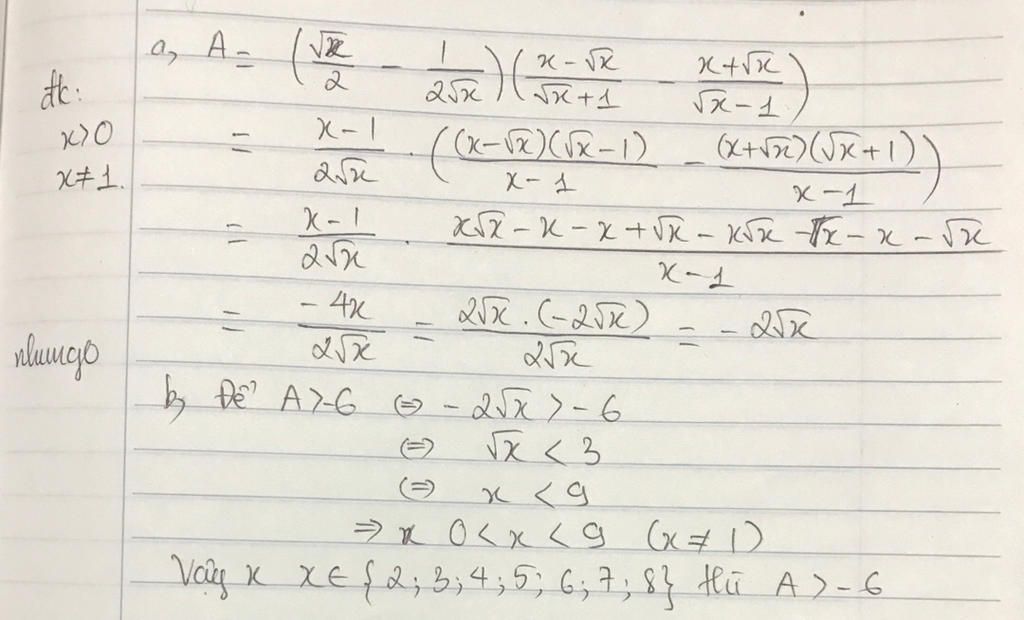 a, A = (√x/2 - 1/2√x)(x-√x/√x+1 - x+√x/√x-1)
đk:
x>0
= x-1/2√x . ((x-√x)(√x-1)/x-1 - (x+√x)(√x+1)/x-1)
x≠1.
= x-1/2√x . x√x - x - x + √x - x√x - x - x - √x/x-1
= -4x/2√x = 2√x.(-2√x)/2√x = -2√x
nhungo
b, Để A>-6 (=) -2√x > -6
(=) √x < 3
(=) x < 9
⇒ x 0<x<9 (x≠1)
Vậy x x∈{2;3;4;5;6;7;8} thì A>-6